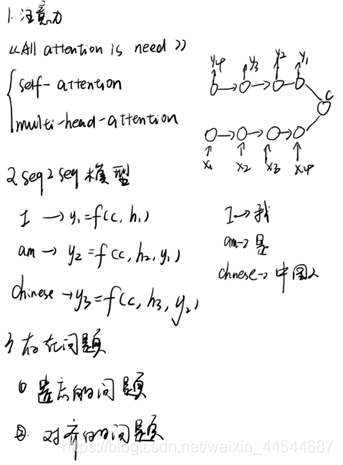 1.注意力
《All attention is need》
self-attention
multi-head-attention
y4 y3 y2 y1
C
x1 x2 x3 x4
2 seq2seq模型
I → y1=f(c, h1)
am → y2=f(c, h2, y1)
chinese → y3=f(c, h3, y2)
I→我
am→是
chinese→中国人
3存在问题
① 遗忘的问题
② 对齐的问题
https://blog.csdn.net/weixin_44544687